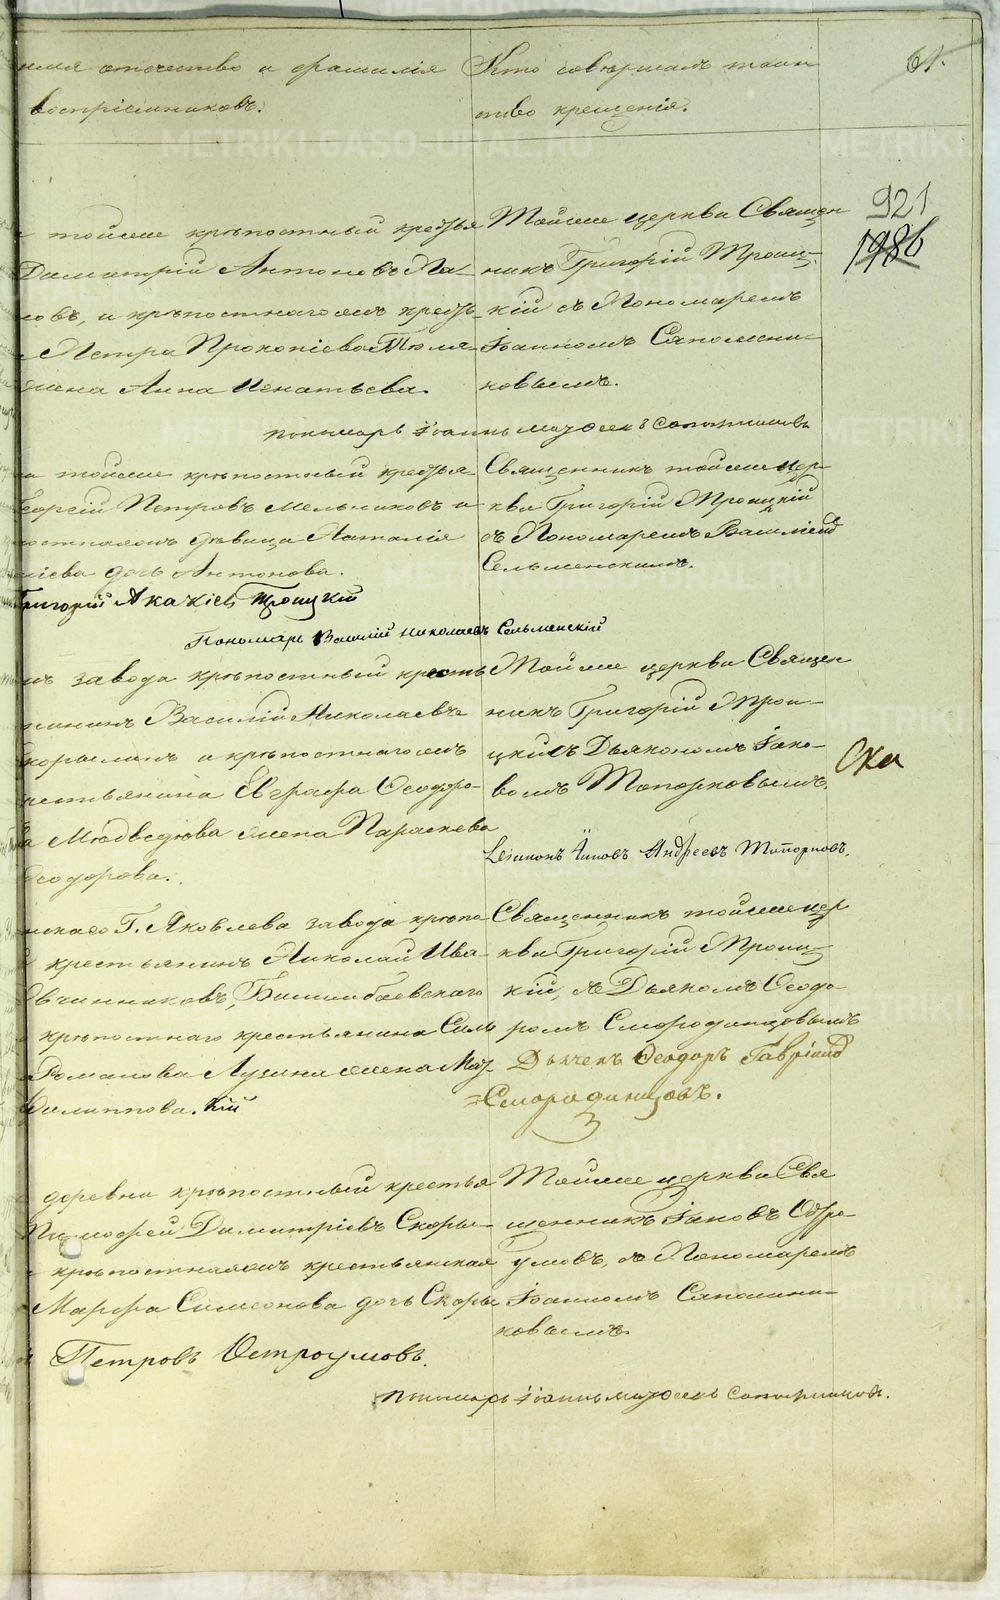 имя отечество и фамилія
воспріемниковъ.
Кто совершалъ таин
ство крещенія.
61.
921
1986
тойже крѣпостный крестья
Димитрій Антоновъ Па-
новъ, и крѣпостнагожъ крестья-
Петра Прокопіева
жена Анна Игнатьева.
Тойже церкви Священ
никъ Григорій Троиц-
кій съ Пономаремъ
Іоанномъ Сапожни-
ковымъ.
пономарь Іоаннъ Сапожниковъ
тойже крѣпостный крестья
Георгій Петровъ Мельниковъ и
дѣвица Наталія
дочь Антонова.
Священникъ тойже цер-
кви Григорій Троицкій
съ Пономаремъ Василіемъ
Сельменскимъ.
Григорій Акакіевъ Троицкій
Пономарь Василій Николаевъ Сельменскій
завода крѣпостный кресть
янинъ Василій Николаевъ
и крѣпостнагожъ
крестьянина Евграфа Ѳеодоро-
Медведева жена Параскева
Ѳеодорова.
Тойже церкви Священ
никъ Григорій Трои-
цкій съ Дьякономъ Іако-
вомъ Топорковымъ.
Діаконъ Іаковъ Андреевъ Топорковъ.
Ска
Г. Яковлева завода крѣпо
крестьянинъ Николай Ива-
Овчинниковъ, Билимбаевскаго
крѣпостнаго крестьянина Силы
Романова Лузина жена
Филиппова. кій
Священникъ тойже цер
кви Григорій Трои-
кій, съ Дьякомъ Ѳеодо-
ромъ Смородинцовымъ
Дьячекъ Ѳеодоръ Гавріиловъ
Смородинцовъ.
деревни крѣпостный крестья
Тимофей Димитріевъ Скоры-
крѣпостнаяжъ крестьянская
Марфа Симеонова дочь Скоры
Тойже церкви Свя
щенникъ Іаковъ Остро-
умовъ, съ Пономаремъ
Іоанномъ Сапожни-
ковымъ.
Петровъ Остроумовъ.
пономарь Іоаннъ Сапожниковъ.
METRIKI.GASO-URAL.RU